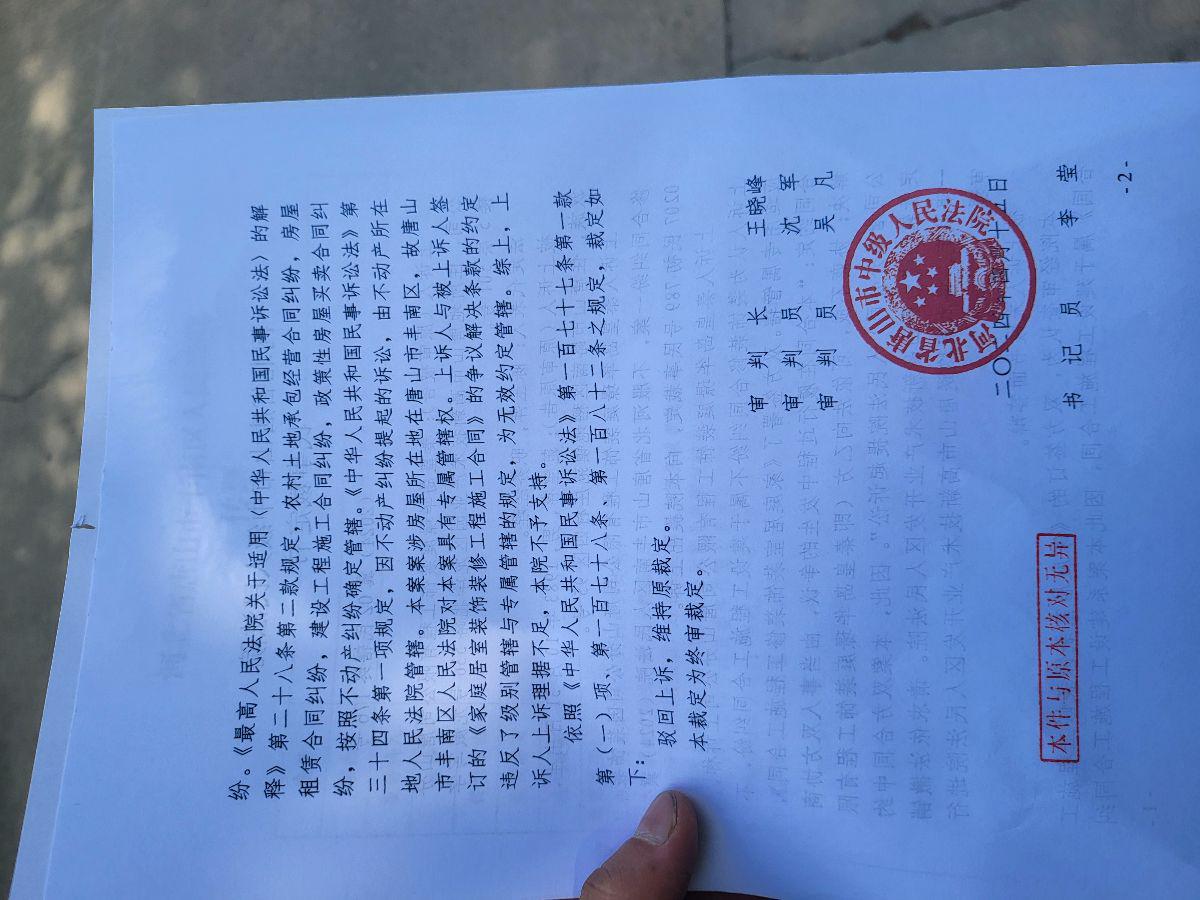 纷。《最高人民法院关于适用〈中华人民共和国民事诉讼法〉的解
释》第二十八条第二款规定，农村土地承包经营合同纠纷，房屋
租赁合同纠纷，建设工程施工合同纠纷，政策性房屋买卖合同纠
纷，按照不动产纠纷确定管辖。《中华人民共和国民事诉讼法》第
三十四条第一项规定，因不动产纠纷提起的诉讼，由不动产所在
地人民法院管辖。本案案涉房屋所在地在唐山市丰南区，故唐山
市丰南区人民法院对本案具有专属管辖权。上诉人与被上诉人签
订的《家庭居室装饰装修工程施工合同》的争议解决条款的约定
违反了级别管辖与专属管辖的规定，为无效约定管辖。综上，上
诉人上诉理据不足，本院不予支持。
依照《中华人民共和国民事诉讼法》第一百七十七条第一款
第（一）项、第一百七十八条、第一百八十二条之规定，裁定如
下：
驳回上诉，维持原裁定。
本裁定为终审裁定。
审 判 长 王晓峰
审 判 员 沈 军
审 判 员 吴 凡
河北省唐山市中级人民法院
二〇二四年四月十五日
书 记 员 李 莹
本件与原本核对无异
-2-